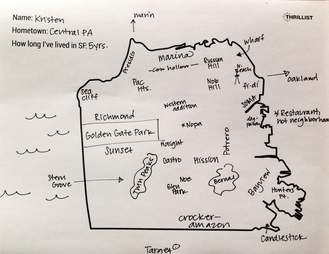 Name: Kristen
THRILLIST
Hometown: Central PA
How long I've lived in SF: 5yrs.
marin
wharf
Presidio
Marina
cow hollow
Russian Hill
n. beach
Oakland
Pac Hts.
Nob Hill
fi-di
Sea Cliff
Western addition
SOMA
* Restaurant, hot neighborhood
Richmond
* Nopa
Golden Gate Park
Haight
Potrero
Sunset
Castro
Mission
Stern Grove
Twin Peaks
Noe
Glen Park
Bernal
Bayview
Hunters Pt.
crocker-amazon
Candlestick